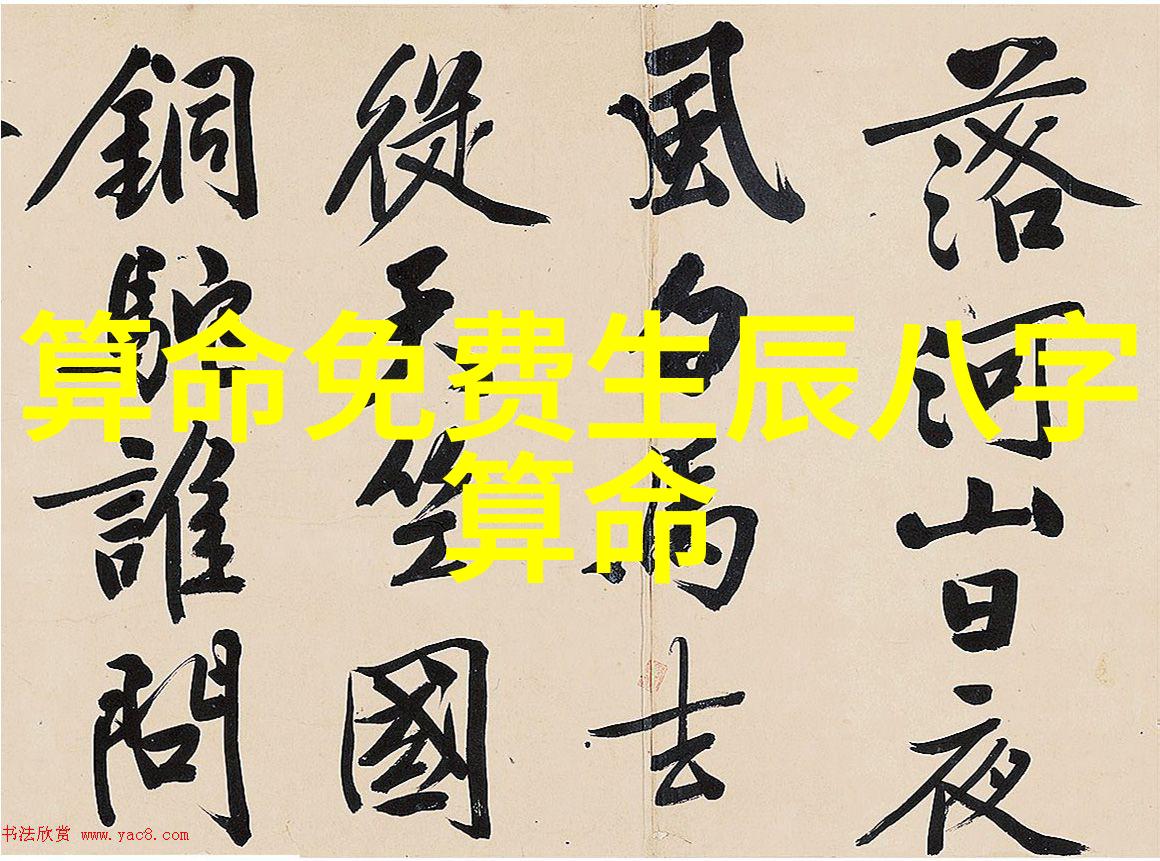 算命免费生辰八字
算命
落河山日夜
風白馬去
從天竺國
銅駝誰問
书法欣赏 www.yac8.com